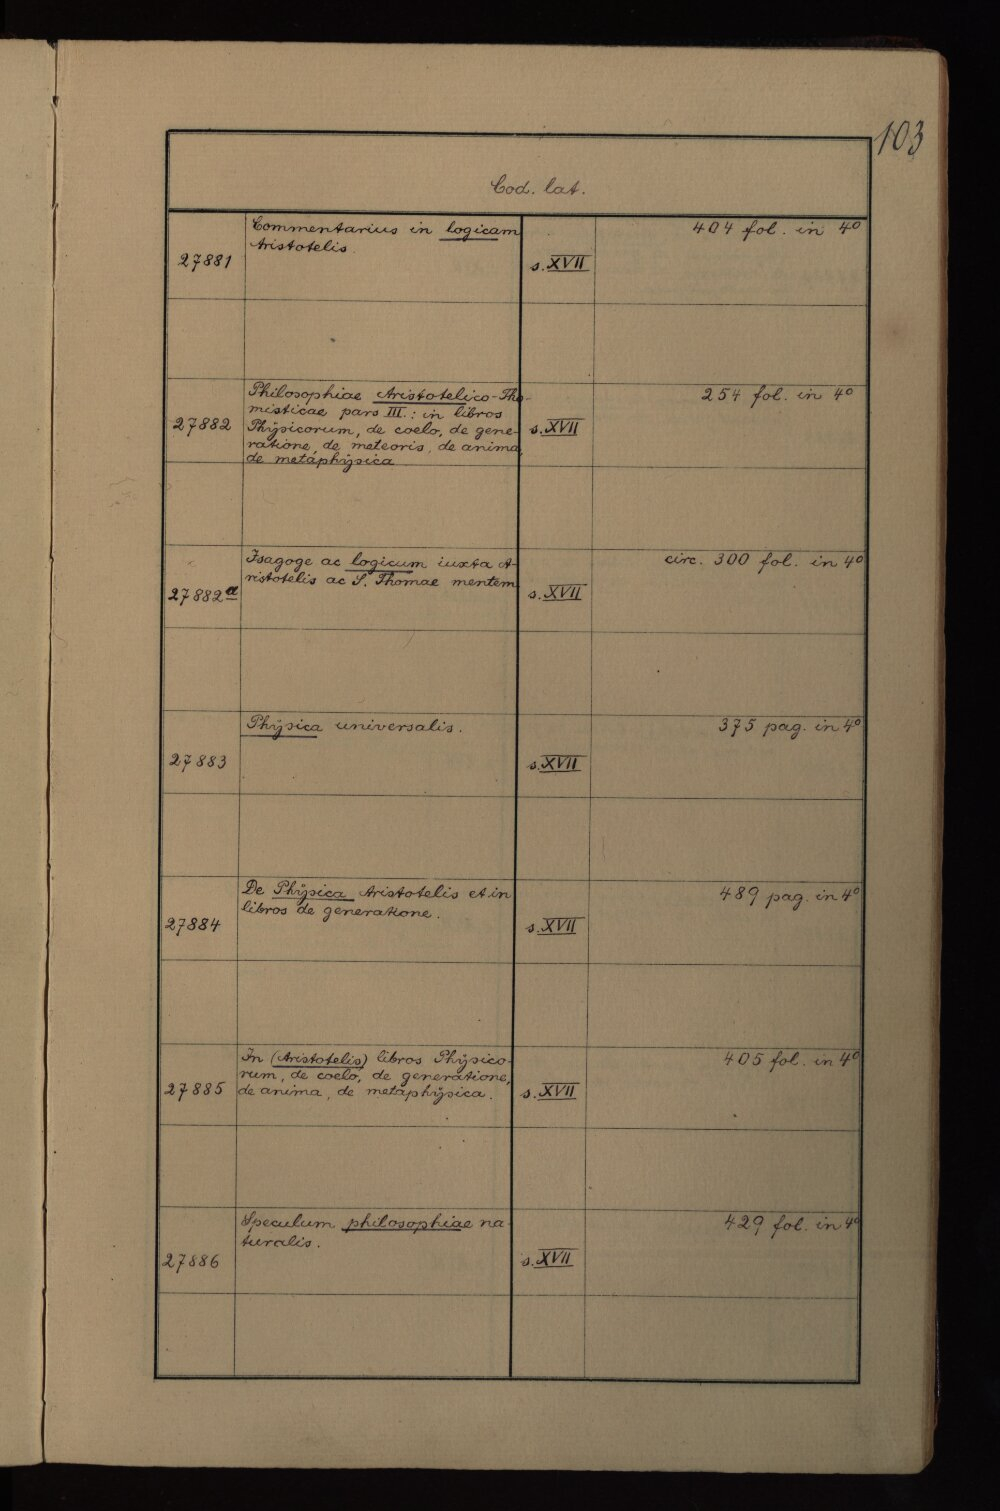 103
Cod. lat.
Commentarius in logicam
Aristotelis.
404 fol. in 4º
27881
s. XVII
Philosophiae Aristotelico-Tho-
misticae pars III.: in libros
Physicorum, de coelo, de gene-
ratione, de meteoris, de anima,
de metaphysica
254 fol. in 4º
27882
s. XVII
Isagoge ac logicum iuxta A-
ristotelis ac S. Thomae mentem
circ. 300 fol. in 4º
27882a
s. XVII
Physica universalis.
375 pag. in 4º
27883
s. XVII
De Physica Aristotelis et in
libros de generatione.
489 pag. in 4º
27884
s. XVII
In (Aristotelis) libros Physico-
rum, de coelo, de generatione,
de anima, de metaphysica.
405 fol. in 4º
27885
s. XVII
Speculum philosophiae na-
turalis.
429 fol. in 4º
27886
s. XVII